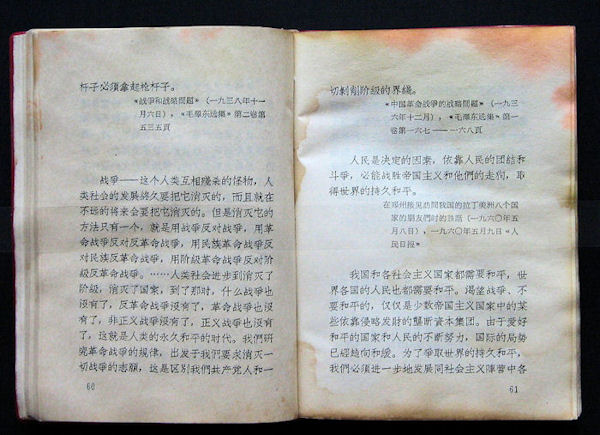 杆子必須拿起枪杆子。
《战爭和战略問題》（一九三八年十一
月六日），《毛澤东选集》第二卷第
五三五頁
战爭——这个人类互相殘杀的怪物，人
类社会的发展終久要把它消灭的，而且就在
不远的将来会要把它消灭的。但是消灭它的
方法只有一个，就是用战爭反对战爭，用革
命战爭反对反革命战爭，用民族革命战爭反
对民族反革命战爭，用阶級革命战爭反对阶
級反革命战爭。……人类社会进步到消灭了
阶級，消灭了国家，到了那时，什么战爭也
沒有了，反革命战爭沒有了，革命战爭也沒
有了，非正义战爭沒有了，正义战爭也沒有
了，这就是人类的永久和平的时代。我們研
究革命战爭的規律，出发于我們要求消灭一
切战爭的志願，这是区別我們共产党人和一
60
切剝削阶級的界綫。
《中国革命战爭的战略問題》（一九三
六年十二月），《毛澤东选集》第一
卷第一六七——一六八頁
人民是决定的因素，依靠人民的团結和
斗爭，必能战胜帝国主义和他們的走狗，取
得世界的持久和平。
在郑州接見訪問我国的拉丁美洲八个国
家的朋友們时的談話（一九六〇年五
月八日），一九六〇年五月九日《人
民日报》
我国和各社会主义国家都需要和平，世
界各国的人民也都需要和平。渴望战爭、不
要和平的，仅仅是少数帝国主义国家中的某
些依靠侵略发財的壟断資本集团。由于爱好
和平的国家和人民的不断努力，国际的局势
已經趋向和緩。为了爭取世界的持久和平，
我們必須进一步地发展同社会主义陣营中各
61